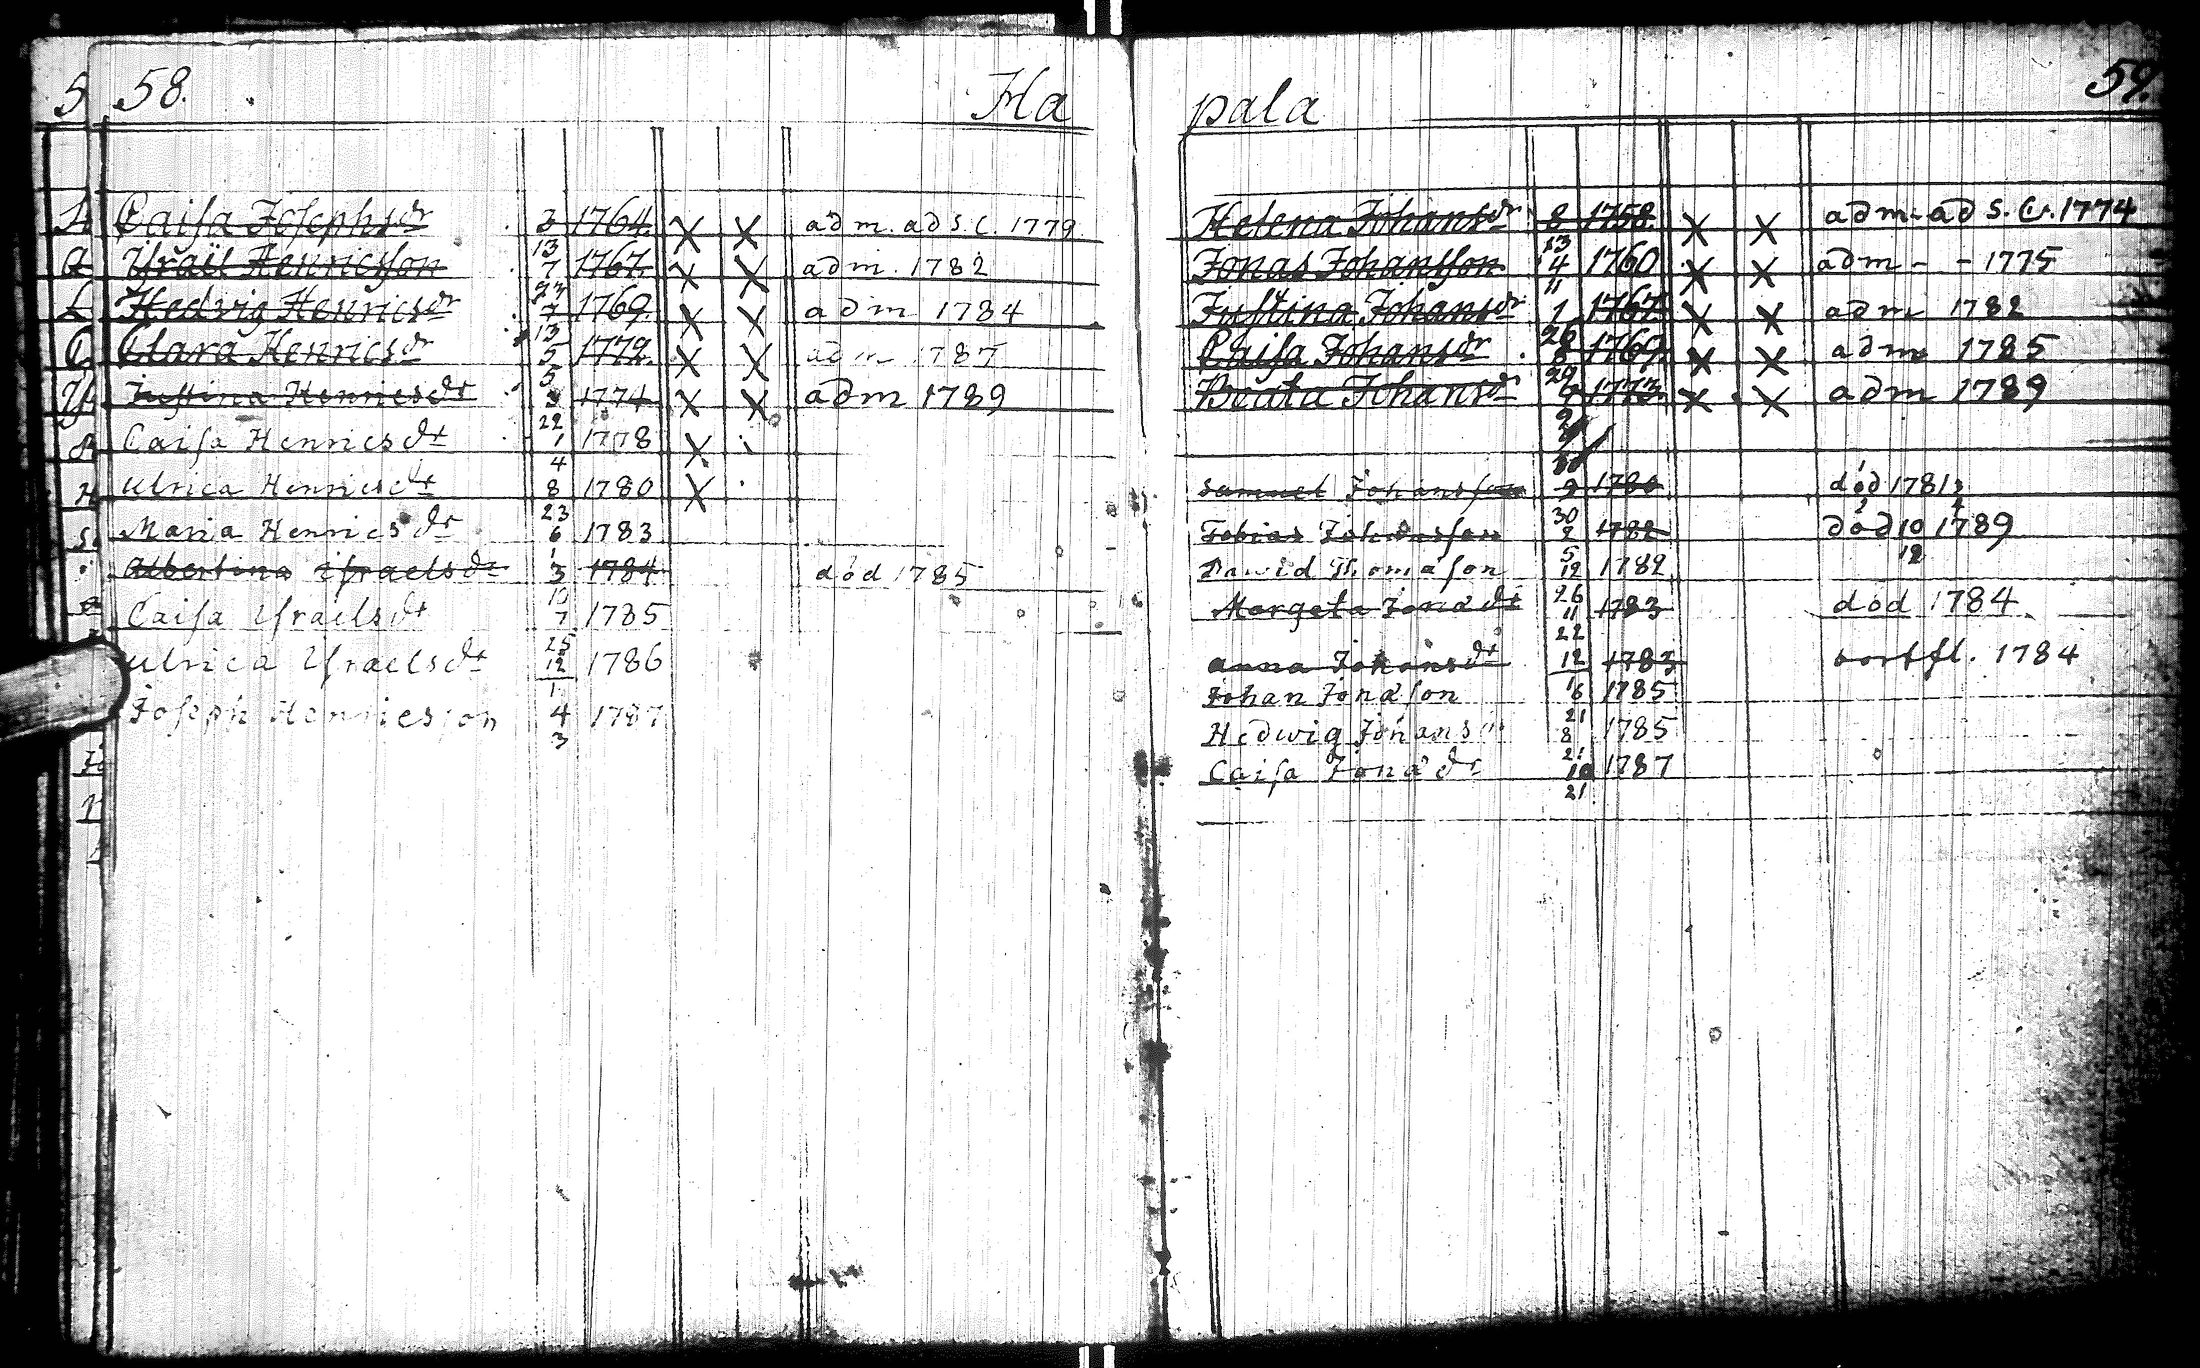 58. Ha
Caisa Josephsdr 3 1764. X X adm. ad S. C. 1779
13
Israël Henricsson 7 1767. X X adm. 1782
23
Hedvig Henricsdr 7 1769. X X adm 1784
13
Clara Henricsdr 5 1772. X X adm 1787
5
Justina Henricsdr 1774 X X adm 1789
22
Caisa Henricsdr 1 1778 X
4
Ulrica Henricsdr 8 1780 X
23
Maria Henricsdr 6 1783
1
Albertina Israelsdr 3 1784 död 1785
10
Caisa Israelsdr 7 1785
25
Ulrica Israelsdr 12 1786
1
Joseph Henricsson 4 1787
3
pala 59.
Helena Johansdr 8 1758. X X adm. ad S. C. 1774
13
Jonas Johansson 4 1760 X X adm - - 1775
11
Justina Johansdr 1 1767 X X adm 1782
28
Caisa Johansdr 8 1769 X X adm 1785
29
Beata Johansdr 1773. X X adm 1789
Samuel Johansson 9 1780 död 1781
30
Tobias Johansson 2 1782 död 10 1789
5 12
David Thomason 12 1782
26
Margeta Jonædr 11 1783 död 1784
22
Anna Johansdr 12 1783 bortfl. 1784
Johan Jonason 1785
21
Hedwig Johansdr 8 1785
21
Caisa Jonædr 10 1787
21